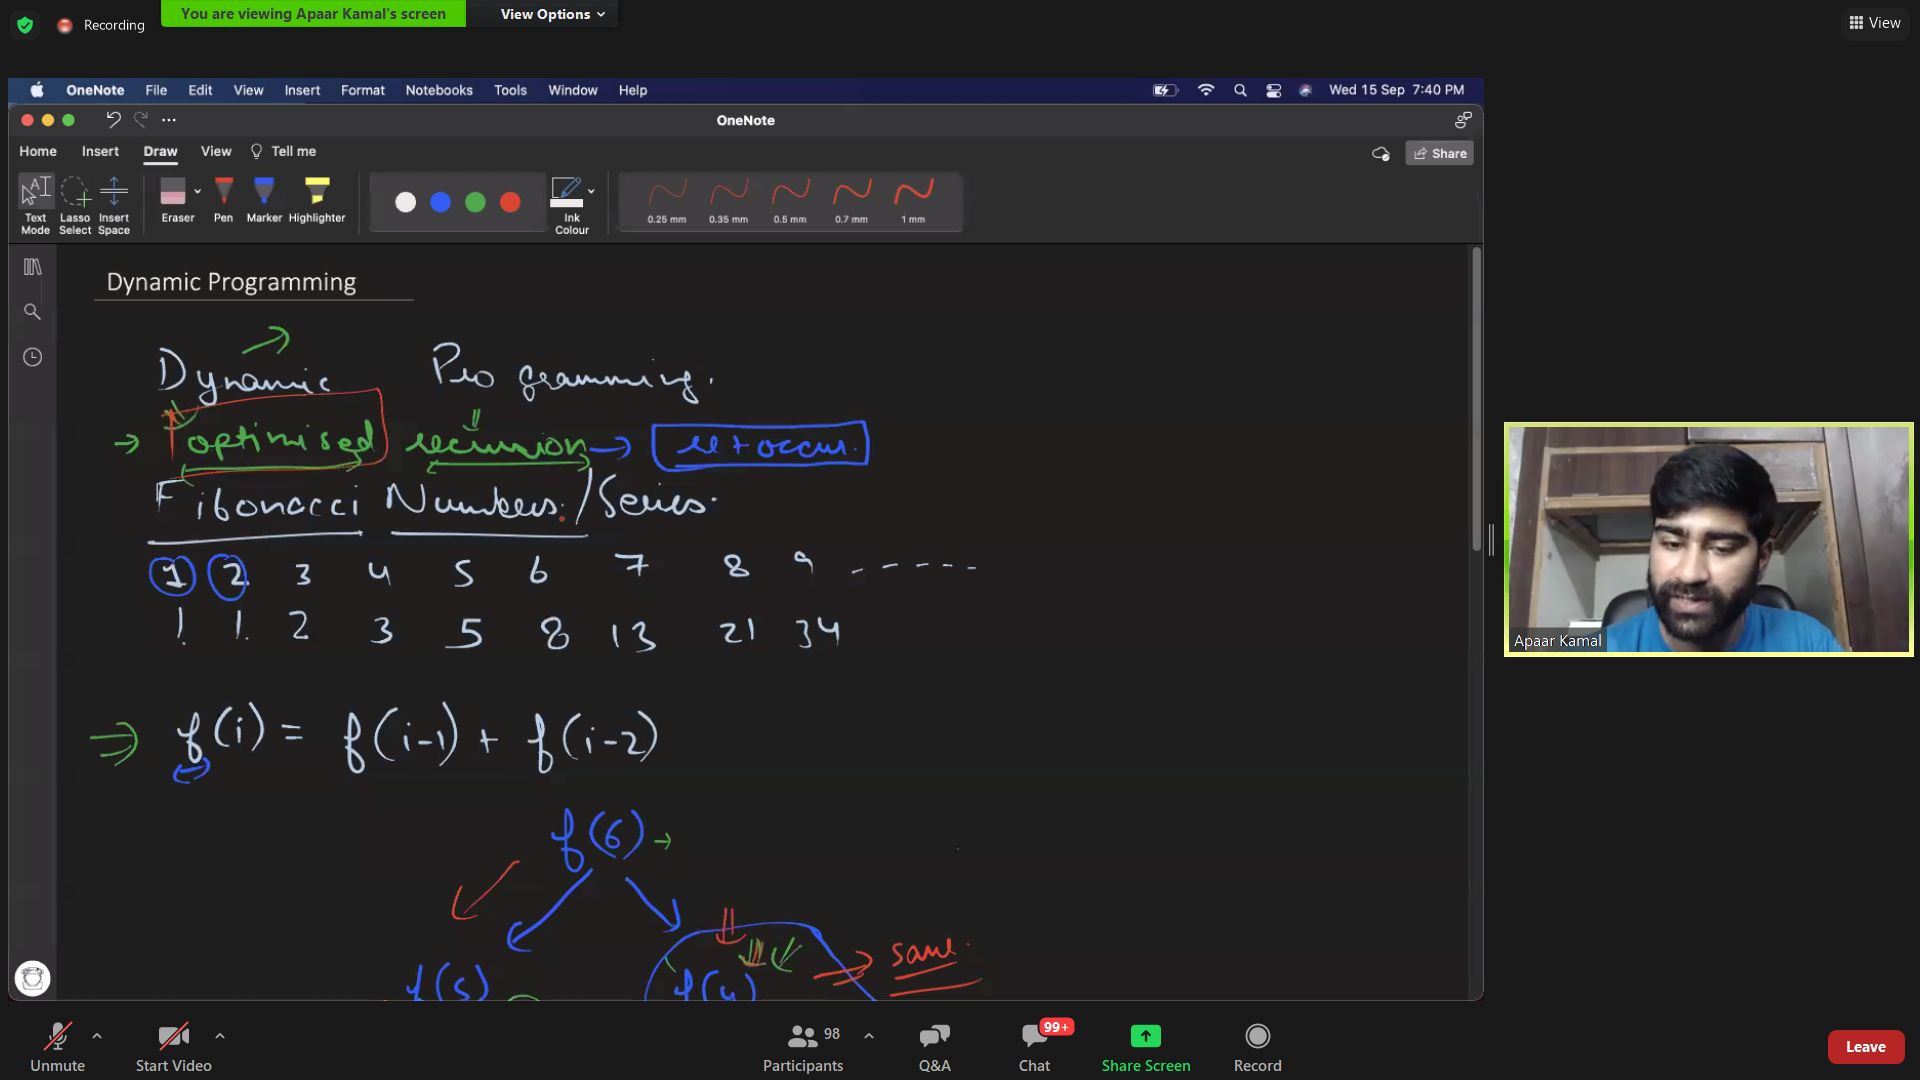 Recording
You are viewing Apaar Kamal's screen
View Options
View
OneNote File Edit View Insert Format Notebooks Tools Window Help
Wed 15 Sep 7:40 PM
OneNote
Home Insert Draw View Tell me
Share
Text Mode
Lasso Select
Insert Space
Eraser
Pen
Marker
Highlighter
Ink Colour
0.25 mm 0.35 mm 0.5 mm 0.7 mm 1 mm
Dynamic Programming
Dynamic Programming.
optimised recursion → re + occur.
Fibonacci Numbers / Series.
1 2 3 4 5 6 7 8 9 ------
1 1 2 3 5 8 13 21 34
⇒ f(i) = f(i-1) + f(i-2)
f(6) →
f(5) f(4)
Apaar Kamal
Unmute
Start Video
Participants 98
Q&A
Chat 99+
Share Screen
Record
Leave